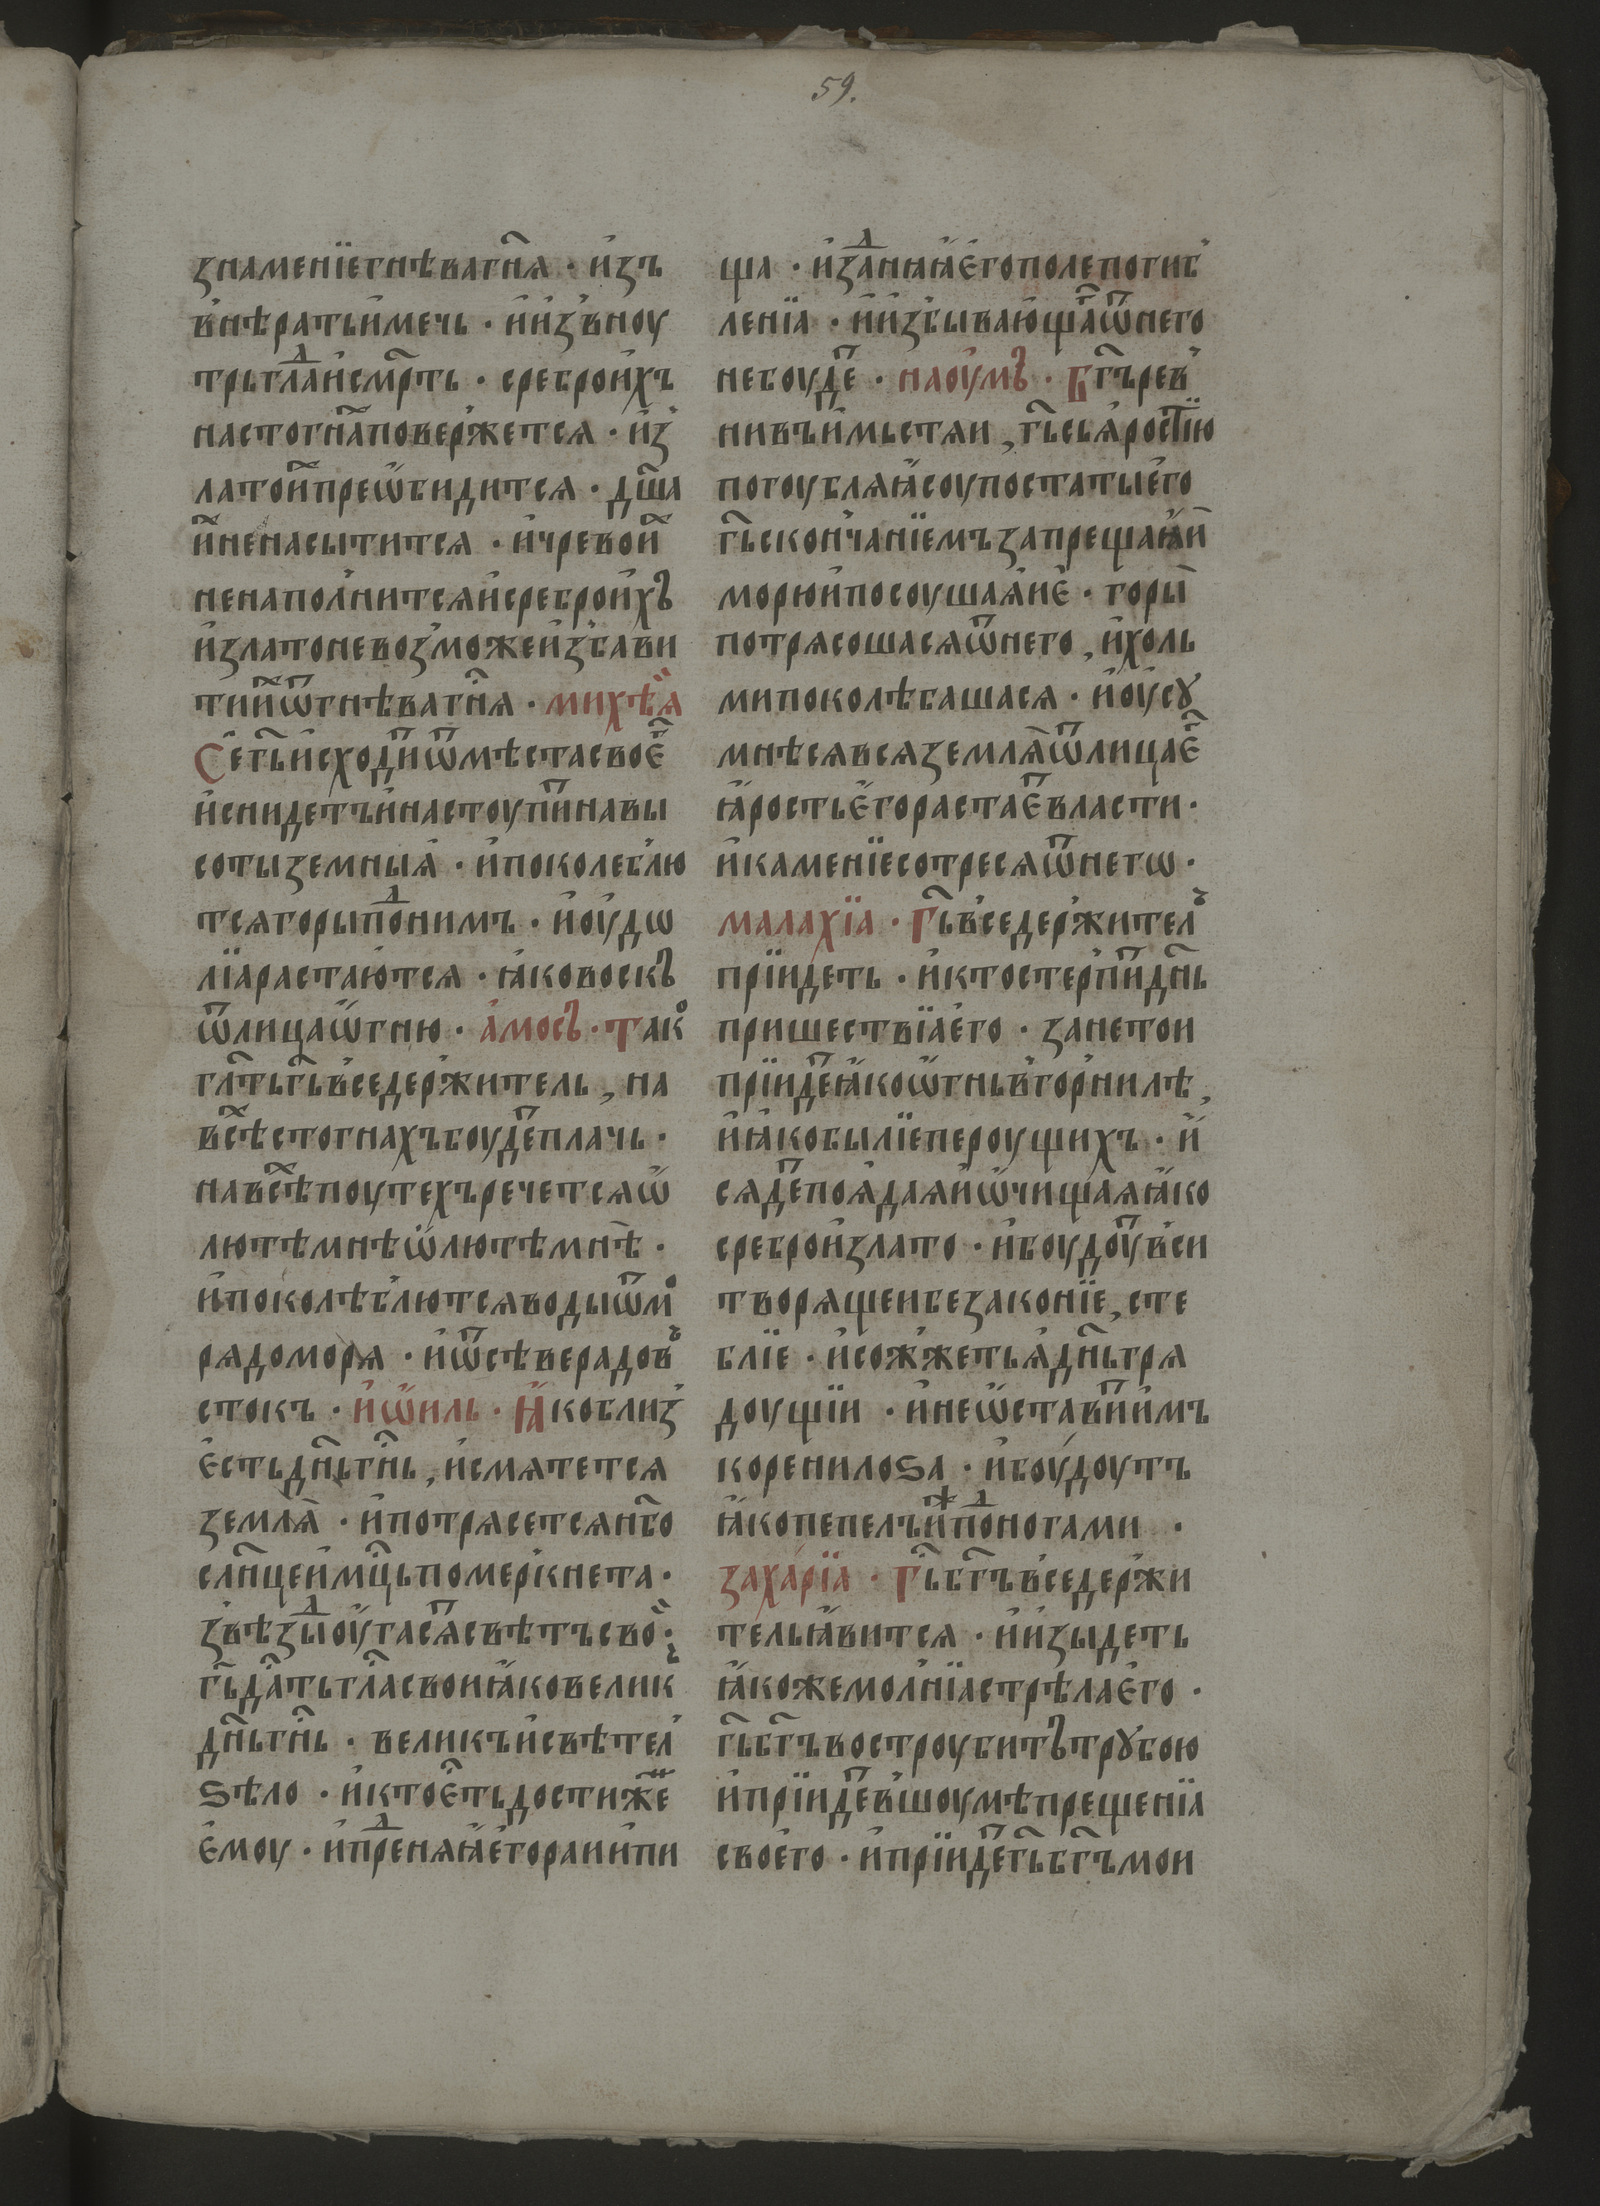 59.
знаменїегнѣвагн҃я · и҆зъ
в҆нѣратьи҆мечь · и҆и҆зъноу
трьглⷣаи҆смр҃ть · среброи҆хъ
настогнⷯаповер҆жется · и҆з҆
латои҆ⷯпреѡ҆бидится · дш҃а
и҆ⷯненасытится · и҆чревои҆ⷯ
ненапол҆нитсяи҆среброи҆хъ
и҆златоневоз҆можеи҆з҆бави
тии҆ⷯѿгнѣвагн҃я · михѣ́я
Сегь҃и҆сходиⷮѿмѣстасвоеⷢ҇
и҆снидетъи҆настоупиⷮнавы
сотыземныя҆ · и҆поколеб҆лю
тсягорыпоⷣнимъ · и҆оу҆дѡ
лїарастаю҆тся · ꙗ҆ковоскъ
ѿлицаѡ҆гню · а҆мосъ · Такⷪ
глт҃ьгь҃в҆седер҆житель, на
всѣⷯстогнахъбоудеⷮплачь ·
навсѣⷯпоутехъречетсяѡ҆
лютѣмнѣѡ҆лютѣмнѣ ·
и҆поколѣб҆лютсяводыѿмⷪ
рядоморя · и҆ѿсѣверадов
стокъ · и҆ѡ҆иль · Ꙗ҆коблиз҆
є҆стьдн҃ьгн҃ь, и҆смятется
земля҆ · и҆потрясетсянб҃о
слн҃цеи҆мц҃ьпомер҆кнета ·
ѕвѣзⷣыоу҆гасяⷮсвѣтъсвоⷤ ·
гь҃дас҃тьглⷭ҇асвоиꙗ҆ковелик
дн҃ьгн҃ь · великъи҆свѣтел҆
ѕѣло · и҆ктоєⷭ҇тьдостижеⷩ҇
є҆моу · и҆преⷣняꙗ҆є҆гораии҆пи
ща · и҆заⷣняꙗ҆є҆гополепогиб҆
ленїа · и҆и҆збываю҆щаⷢ҇ѿнего
небоудеⷮ · наоу҆мъ · Бг҃ърев҆
нивъи҆мьстяи, гь҃сья҆ростїю
погоубляꙗ҆соупостатыє҆го
гь҃скон҆чанїемъзапрещаꙗ҆и҆
морюи҆посоушая҆и҆є҆ · горы҆
потрясошасяѿнего, и҆холь
мипоколѣбашася · и҆оу҆сꙋ
мнѣсявсяземля҆ѿлицаєⷢ҇
ꙗ҆ростьє҆горастаєⷮвласти ·
и҆каменїесотресяѿнегѡ ·
малахїа · Гь҃в҆седер҆жител
прїидеть · и҆ктостер҆пиⷮдн҃ь
пришествїає҆го · занетои
прїидеⷮꙗ҆коѡ҆гньв҆гор҆нилѣ,
и҆ꙗ҆кобылїепероущихъ · и҆
сядеⷮпоя҆дая҆и҆ѡ҆чищаяꙗ҆ко
среброи҆злато · и҆боудоуⷮв҆си
творящеибезаконїе, сте
блїе · и҆сожжетья҆дн҃ьгря
доущїи · и҆неѡ҆ставиⷮи҆мъ
коренилоѕа · и҆боу҆доутъ
ꙗ҆копепелъи҆ⷯпоⷣногами ·
заха́рїа · Гь҃бг҃ъв҆седер҆жи
тельꙗ҆вится · и҆и҆зыдеть
ꙗ҆кожемол҆нїастрѣлає҆го ·
гь҃бг҃ъвостроубитътрꙋбою
и҆прїидеⷮв҆шоумѣпрещенїа
своего · и҆прїидеⷮгь҃бг҃ъмои